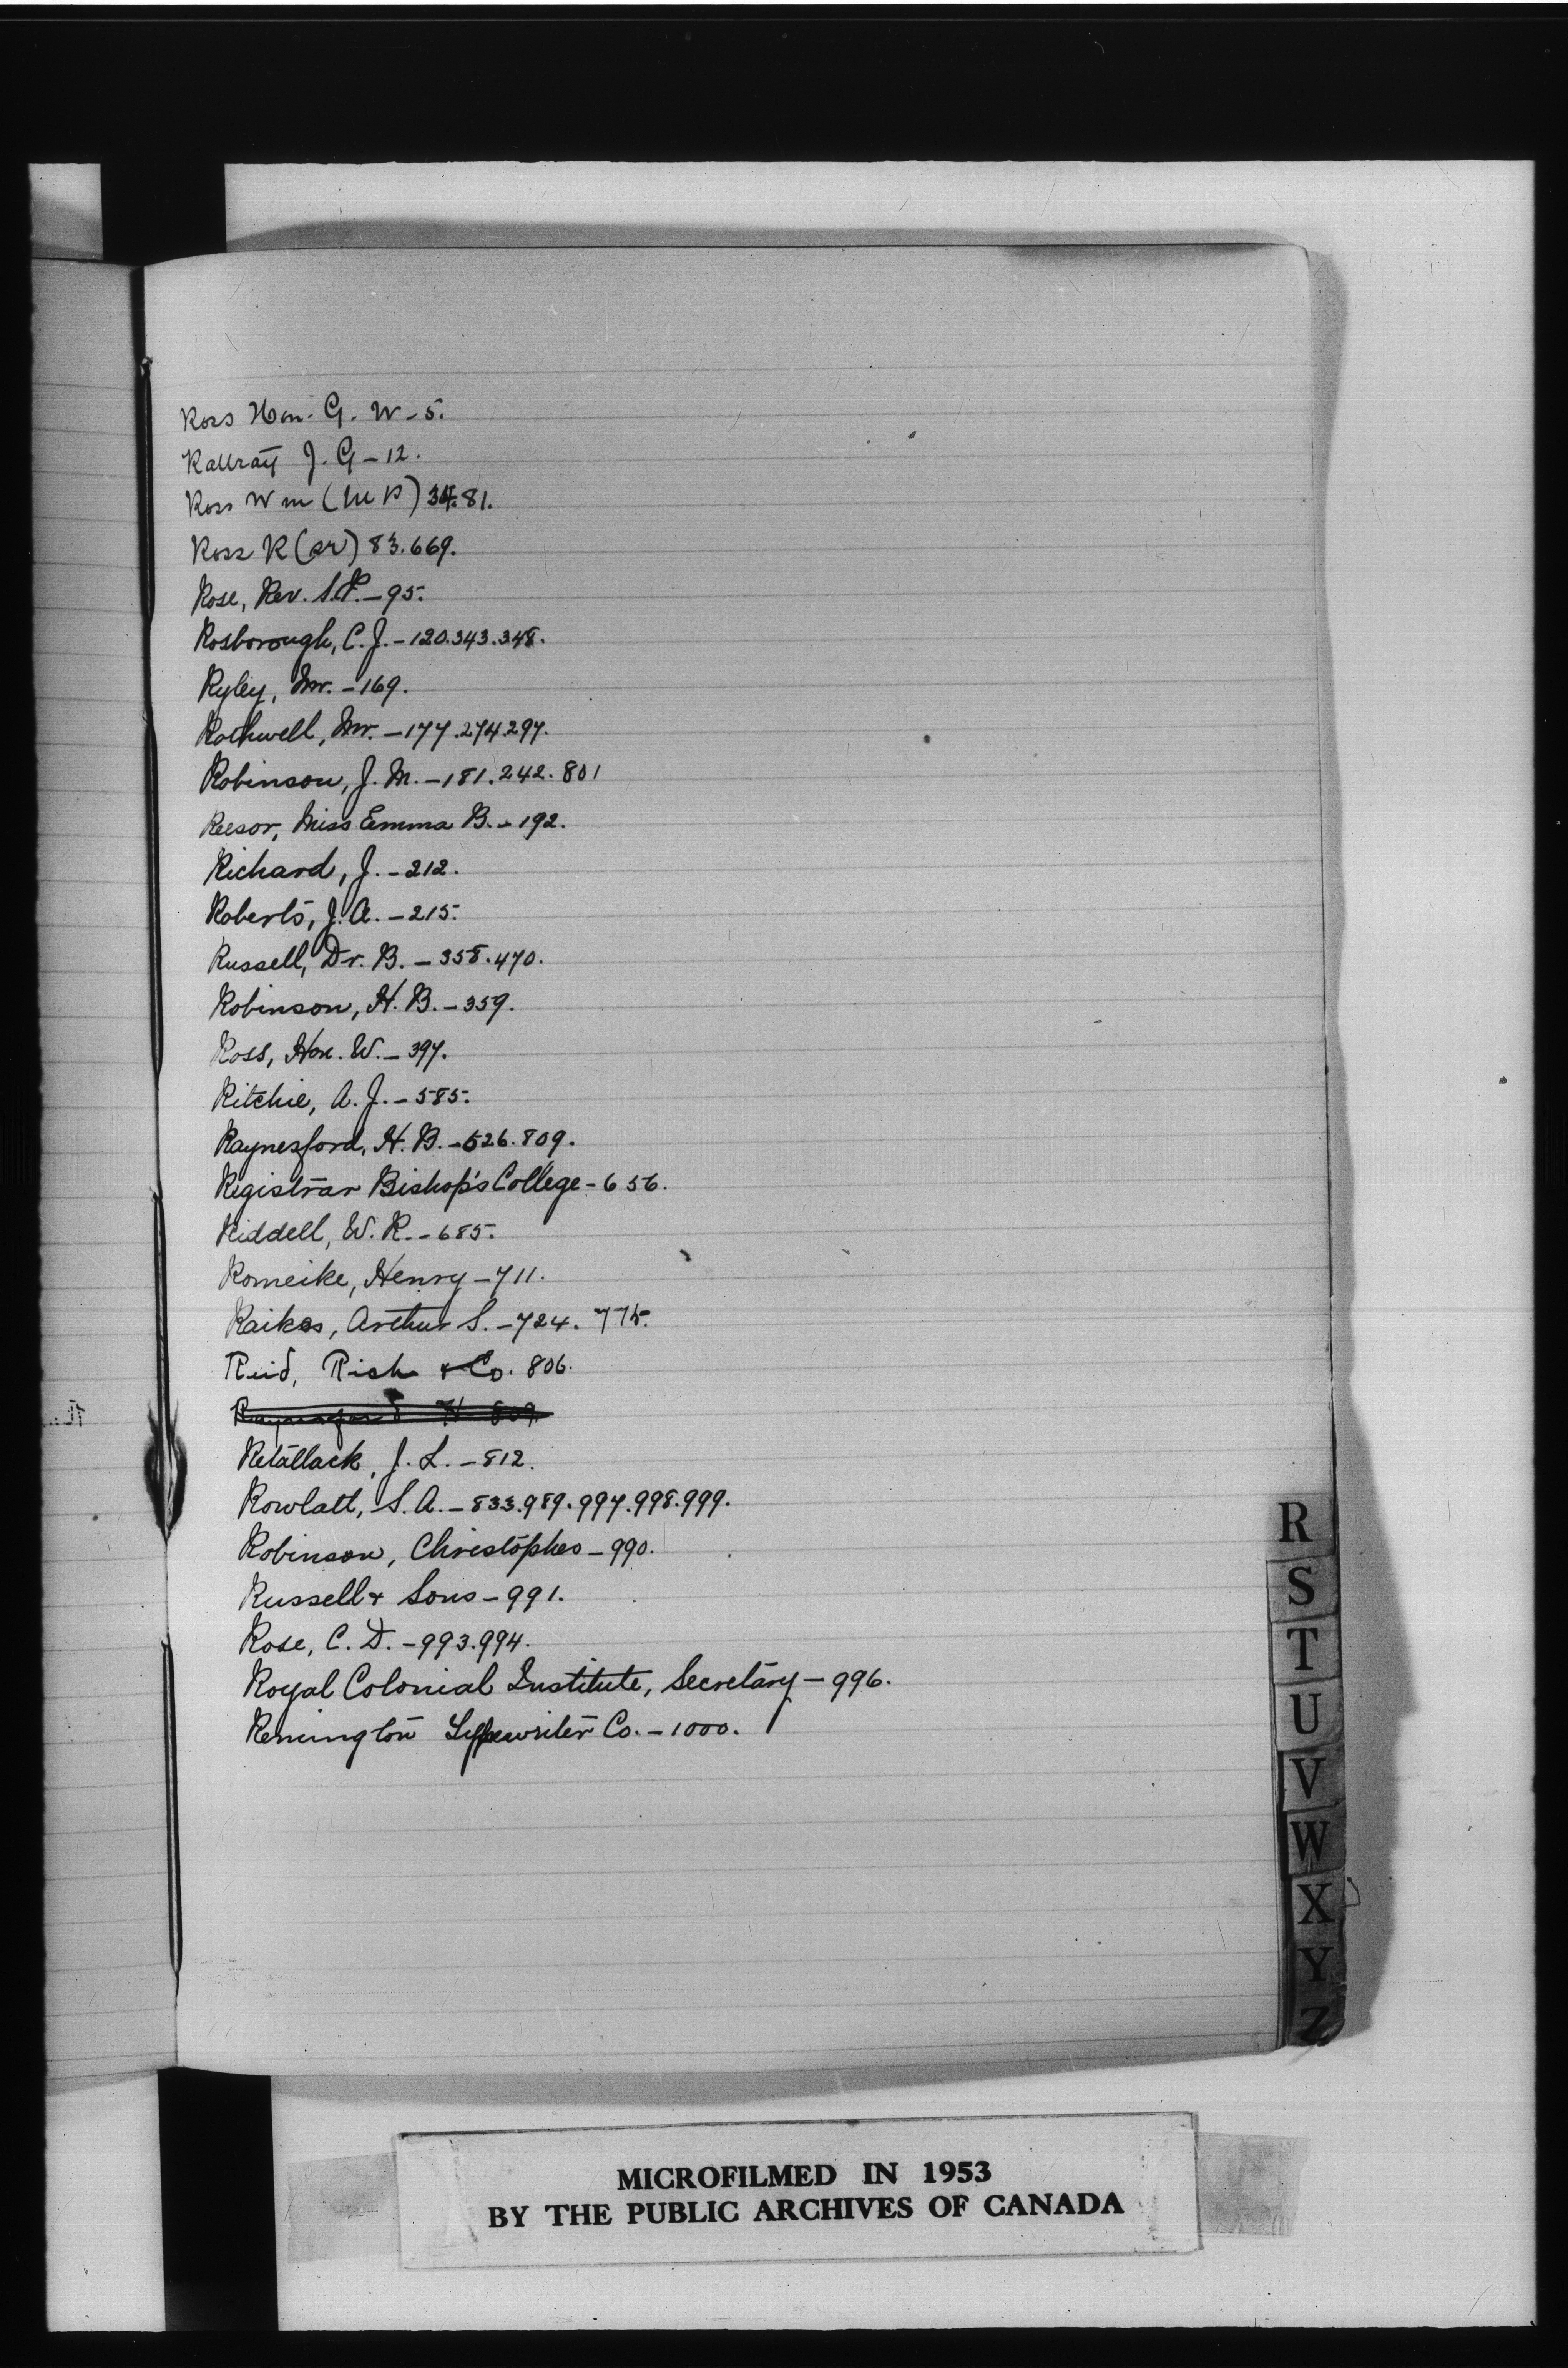 Ross Hon. G. W - 5.
Rattray J. G - 12.
Ross Wm (M P) 34.81.
Ross R (Sr) 83.669.
Rose, Rev. S.P. - 95.
Rosborough, C. J. - 120.343.348.
Ryley, Mr. - 169.
Rothwell, Mr. - 177.274.297.
Robinson, J. M. - 181.242.801
Reesor, Miss Emma B. - 192.
Richard, J. - 212.
Roberts, J. A. - 215.
Russell, Dr. B. - 358.470.
Robinson, H. B. - 359.
Ross, Hon. W. - 397.
Ritchie, A. J. - 585.
Raynesford, H. B. - 626.809.
Registrar Bishop's College - 656.
Riddell, W. R. - 685.
Romeike, Henry - 711.
Raikes, Arthur S. - 724. 775.
Reid, Rich & Co. 806.
Raynesford H 809
Retallack, J. L. - 812.
Rowlatt, S. A. - 833.989.997.998.999.
Robinson, Christopher - 990.
Russell & Sons - 991.
Rose, C. D. - 993.994.
Royal Colonial Institute, Secretary - 996.
Remington Typewriter Co. - 1000.
R
S
T
U
V
W
X
Y
Z
MICROFILMED IN 1953
BY THE PUBLIC ARCHIVES OF CANADA